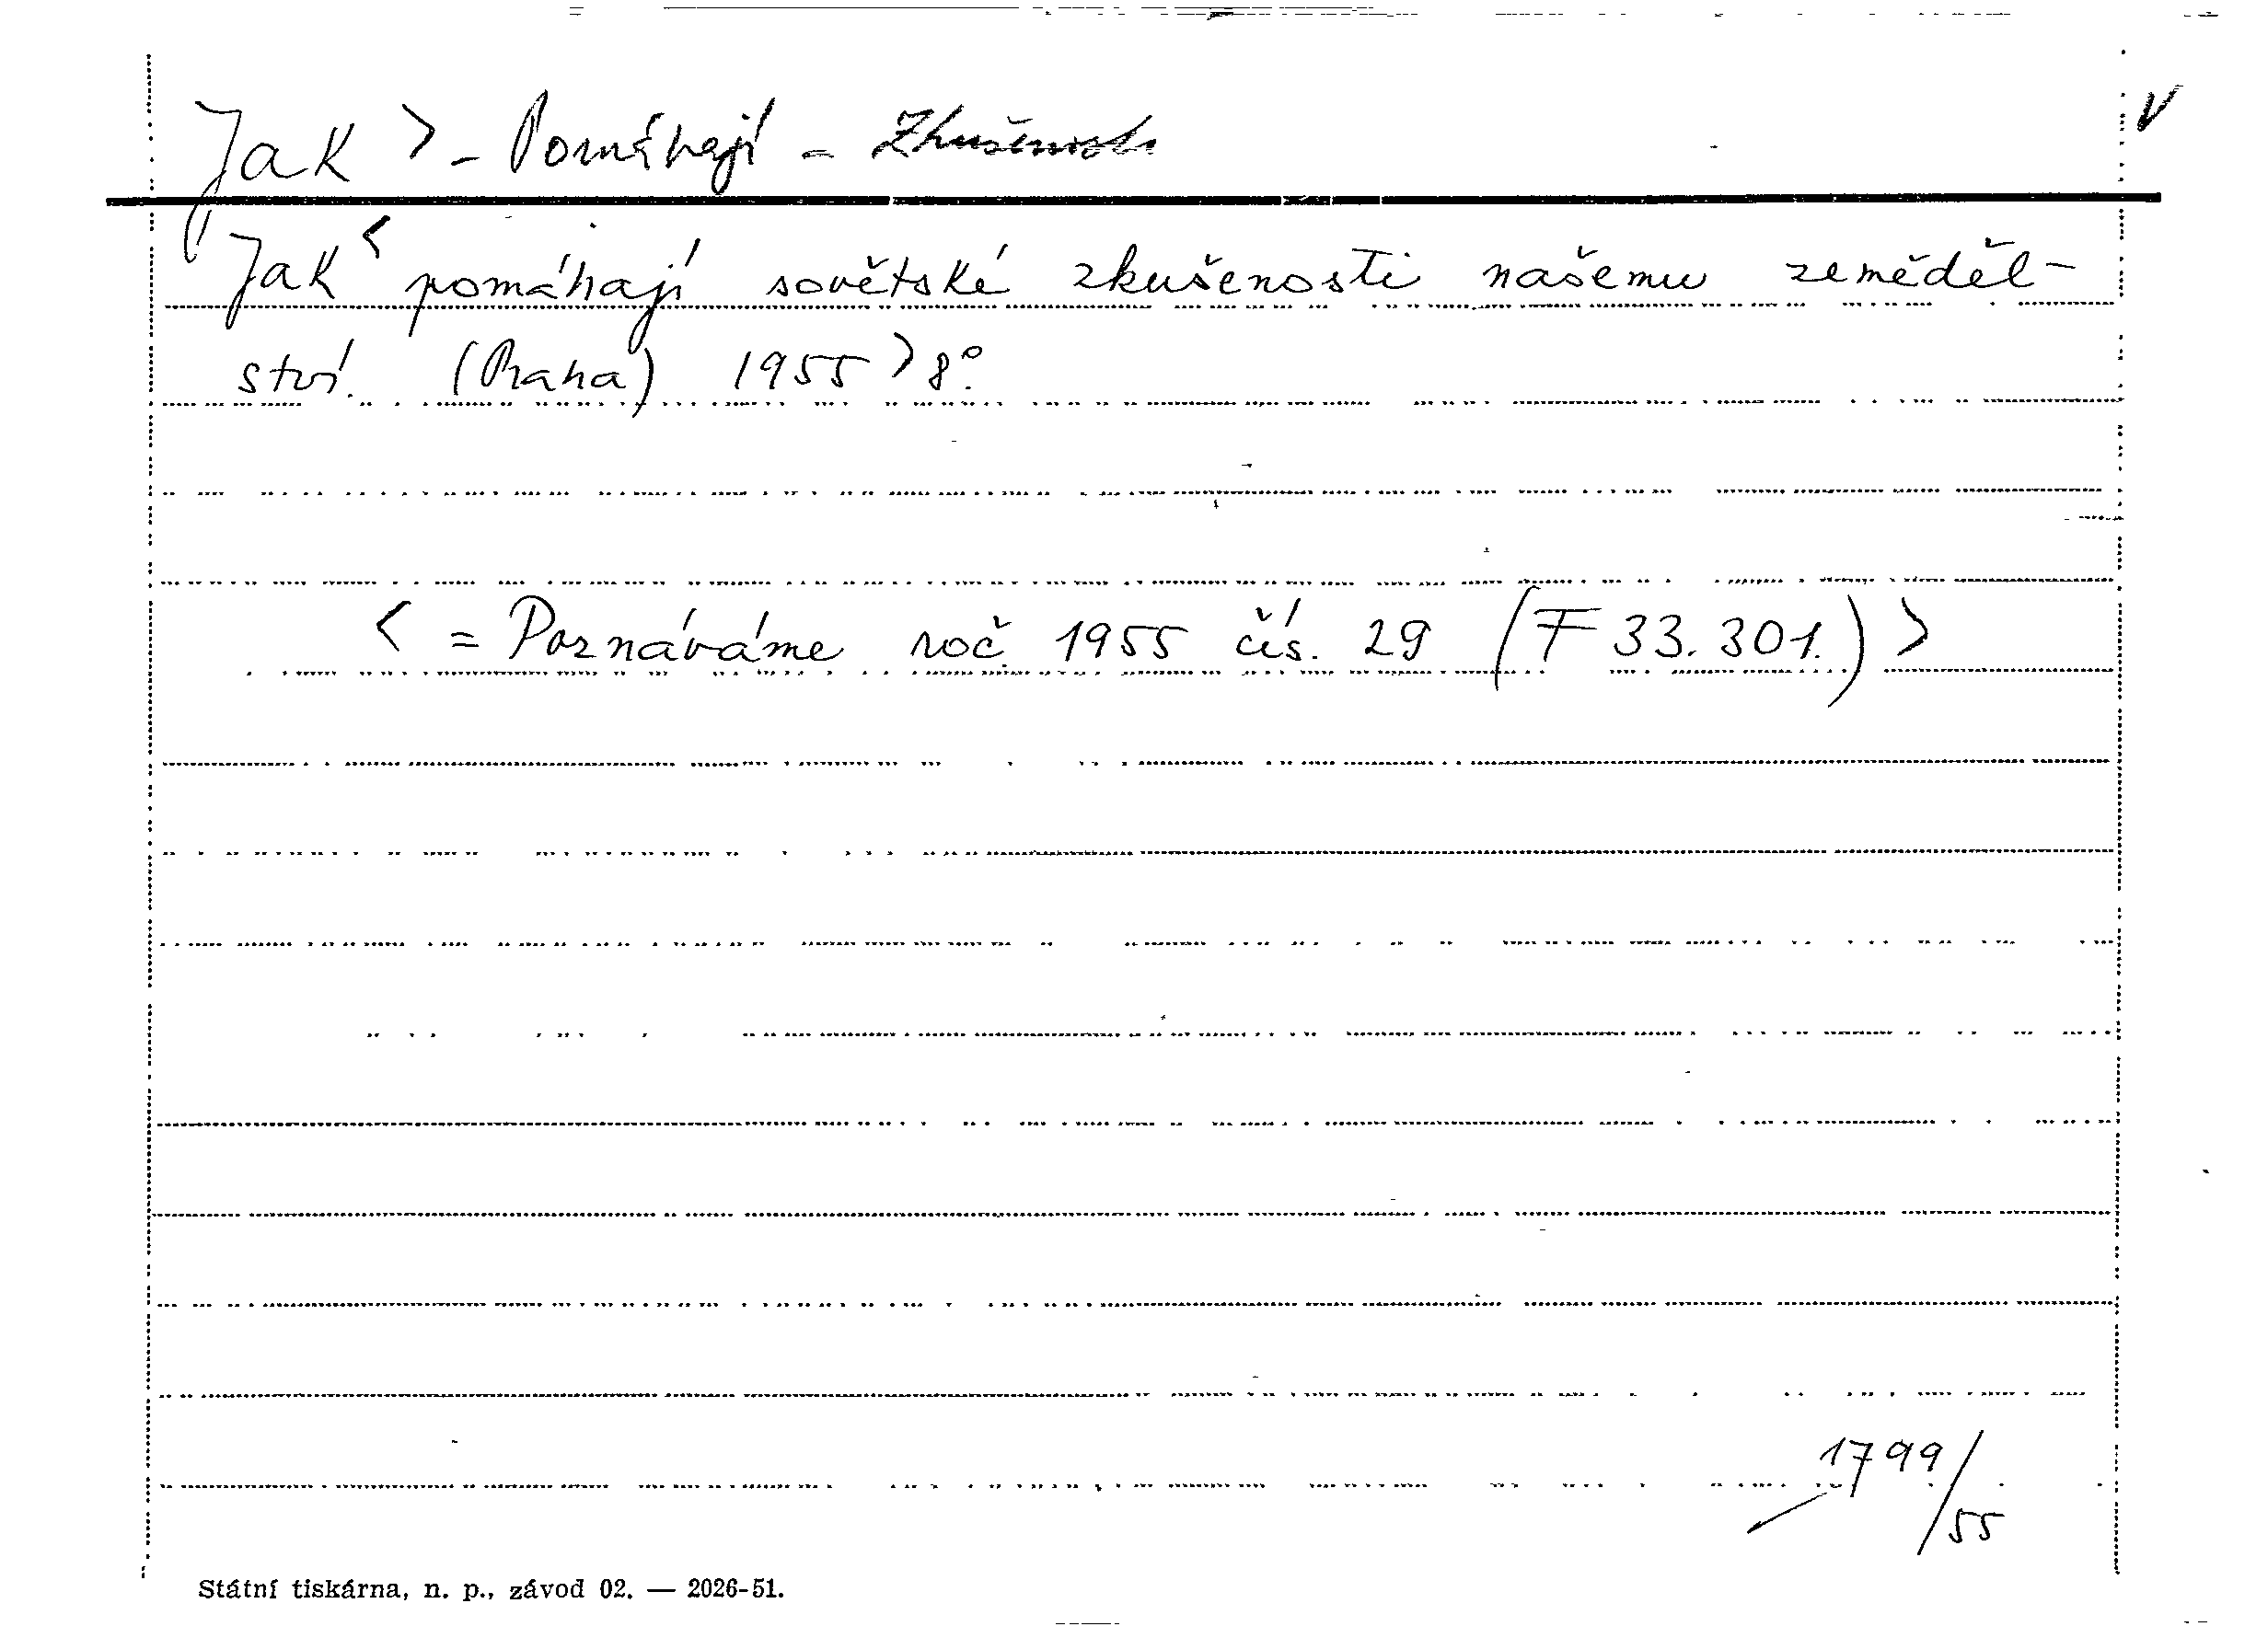 Jak > - Pomáhají - Zkušenosti
V
Jak < pomáhají sovětské zkušenosti našemu zeměděl-
ství. (Praha) 1955 > 8°.
< = Poznáváme roč. 1955 čís. 29 (F 33.301.) >
1799/55
Státní tiskárna, n. p., závod 02. — 2026-51.